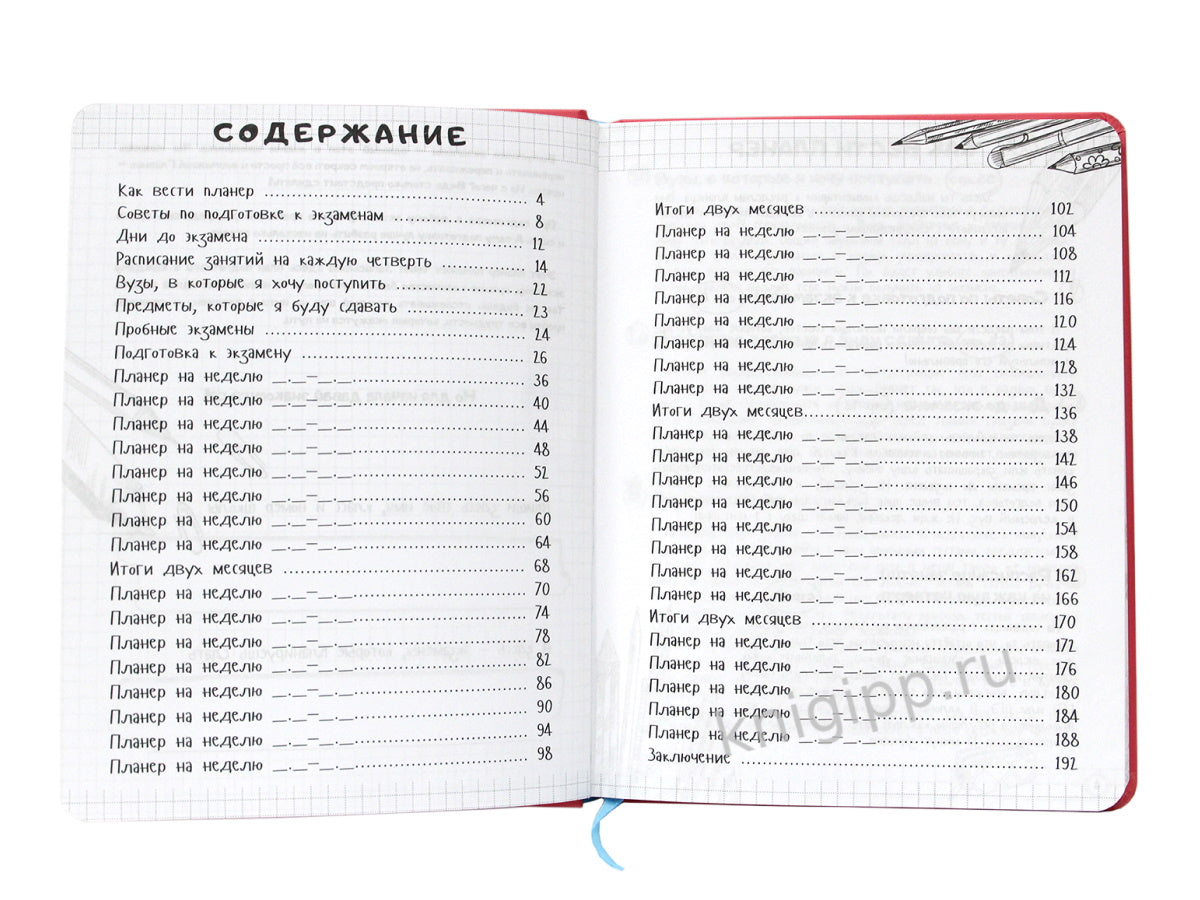 СОДЕРЖАНИЕ
Как вести планер ........................................ 4
Советы по подготовке к экзаменам ................ 8
Дни до экзамена ........................................ 12
Расписание занятий на каждую четверть .......... 14
Вузы, в которые я хочу поступить .................. 22
Предметы, которые я буду сдавать ................ 23
Пробные экзамены ........................................ 24
Подготовка к экзамену ................................ 26
Планер на неделю __.__–__.__.......................... 36
Планер на неделю __.__–__.__.......................... 40
Планер на неделю __.__–__.__.......................... 44
Планер на неделю __.__–__.__.......................... 48
Планер на неделю __.__–__.__.......................... 52
Планер на неделю __.__–__.__.......................... 56
Планер на неделю __.__–__.__.......................... 60
Планер на неделю __.__–__.__.......................... 64
Итоги двух месяцев ...................................... 68
Планер на неделю __.__–__.__.......................... 70
Планер на неделю __.__–__.__.......................... 74
Планер на неделю __.__–__.__.......................... 78
Планер на неделю __.__–__.__.......................... 82
Планер на неделю __.__–__.__.......................... 86
Планер на неделю __.__–__.__.......................... 90
Планер на неделю __.__–__.__.......................... 94
Планер на неделю __.__–__.__.......................... 98
Итоги двух месяцев ...................................... 102
Планер на неделю __.__–__.__.......................... 104
Планер на неделю __.__–__.__.......................... 108
Планер на неделю __.__–__.__.......................... 112
Планер на неделю __.__–__.__.......................... 116
Планер на неделю __.__–__.__.......................... 120
Планер на неделю __.__–__.__.......................... 124
Планер на неделю __.__–__.__.......................... 128
Планер на неделю __.__–__.__.......................... 132
Итоги двух месяцев...................................... 136
Планер на неделю __.__–__.__.......................... 138
Планер на неделю __.__–__.__.......................... 142
Планер на неделю __.__–__.__.......................... 146
Планер на неделю __.__–__.__.......................... 150
Планер на неделю __.__–__.__.......................... 154
Планер на неделю __.__–__.__.......................... 158
Планер на неделю __.__–__.__.......................... 162
Планер на неделю __.__–__.__.......................... 166
Итоги двух месяцев ...................................... 170
Планер на неделю __.__–__.__.......................... 172
Планер на неделю __.__–__.__.......................... 176
Планер на неделю __.__–__.__.......................... 180
Планер на неделю __.__–__.__.......................... 184
Планер на неделю __.__–__.__.......................... 188
Заключение ................................................ 192
knigipp.ru